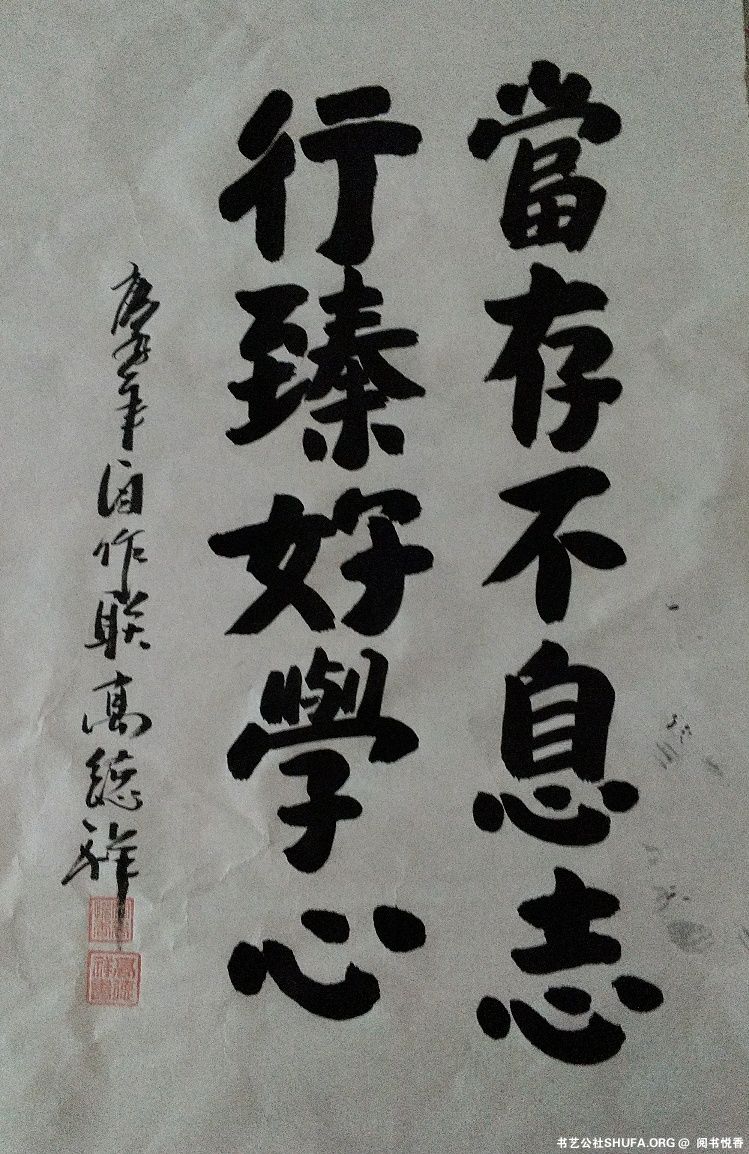 當存不息志
行臻好學心
年自作联高德祥
书艺公社SHUFA.ORG @ 阅书悦香